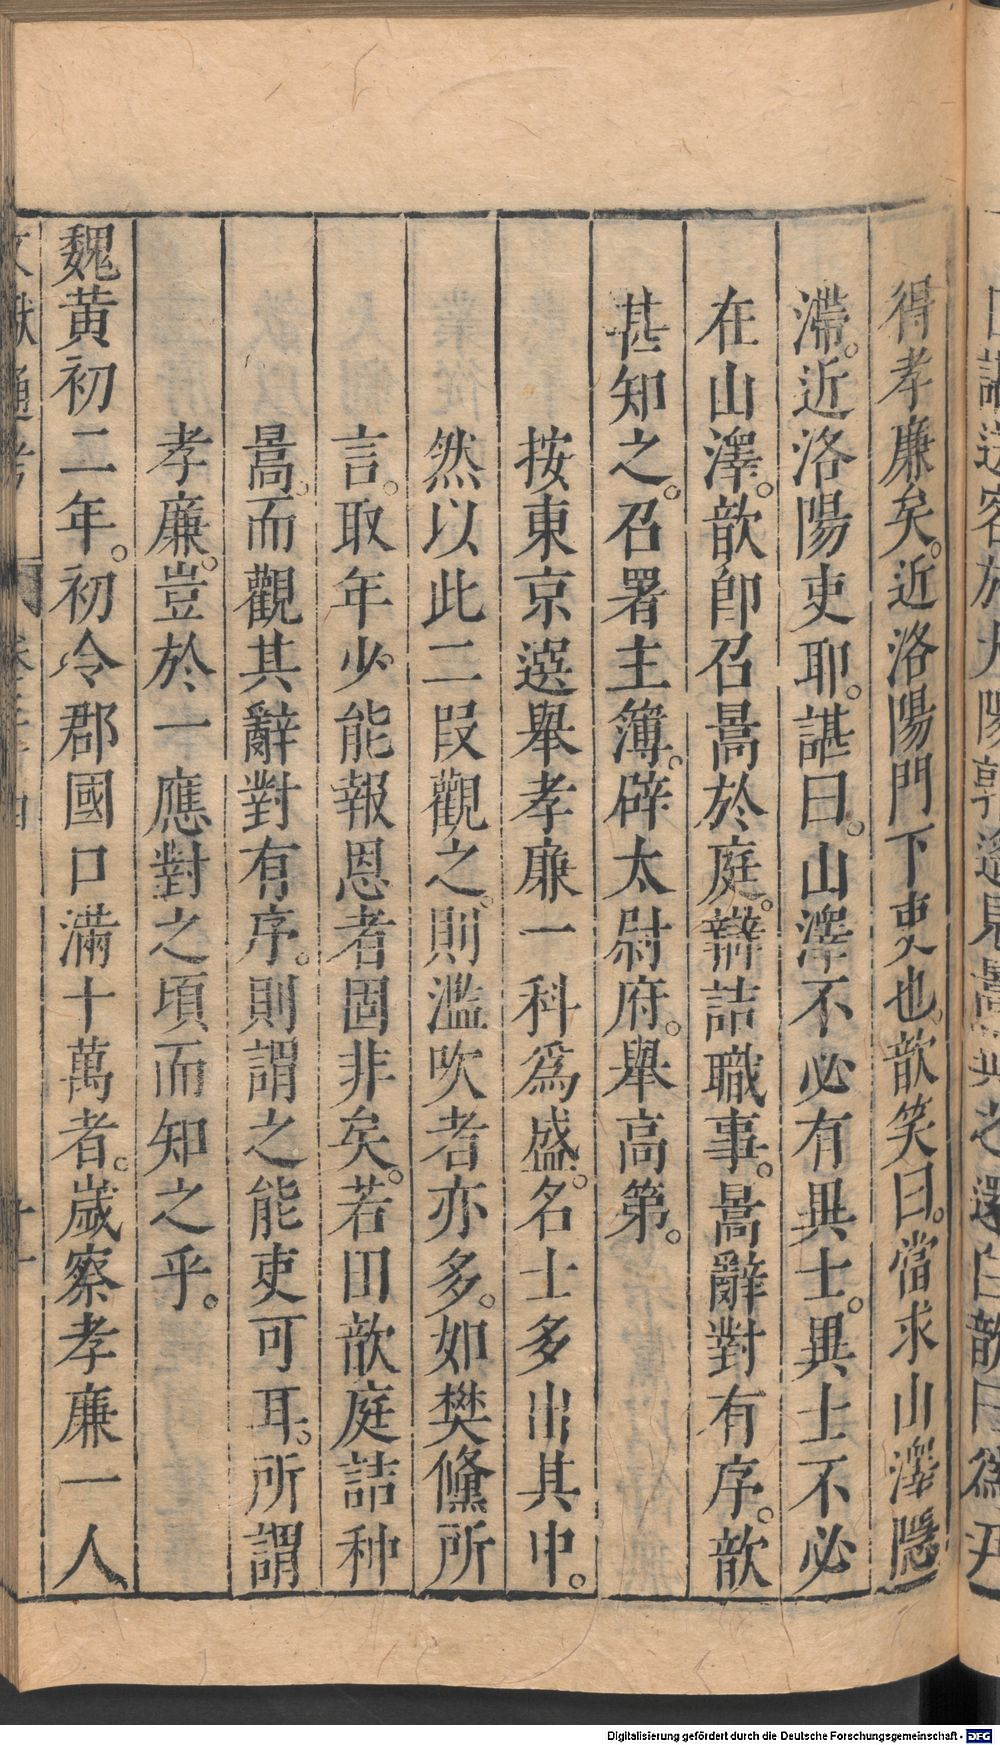 得孝廉矣。近洛陽門下吏也。歆笑曰。當求山澤隱
滯。近洛陽吏耶。諶曰。山澤不必有異士。異士不必
在山澤。歆即召暠於庭。辯詰職事。暠辭對有序。歆
甚知之。召署主簿。辟太尉府。舉高第。
按東京選舉孝廉一科爲盛。名士多出其中。
然以此二叚觀之。則濫吹者亦多。如樊儵所
言。取年少。能報恩者固非矣。若田歆庭詰种
暠。而觀其辭對有序。則謂之能吏可耳。所謂
孝廉。豈於一應對之頃而知之乎。
魏黄初二年。初令郡國口滿十萬者。嵗察孝廉一人
文獻通考
Digitalisierung gefördert durch die Deutsche Forschungsgemeinschaft - DFG